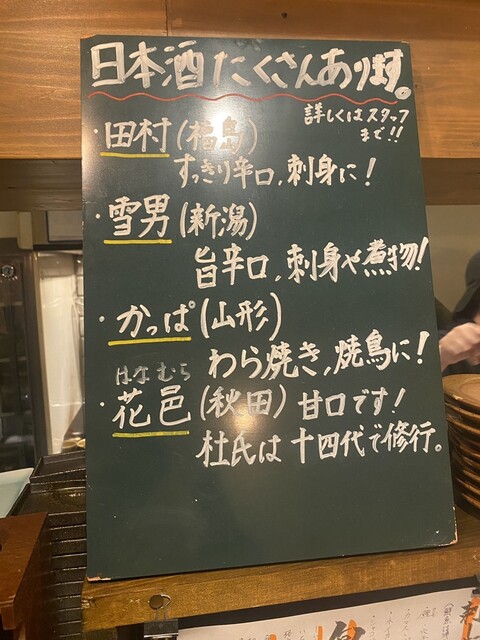 日本酒たくさんあります。
詳しくはスタッフ
まで!!
・田村(福島)
すっきり辛口、刺身に!
・雪男(新潟)
旨辛口、刺身や煮物!
・かっぱ(山形)
わら焼き、焼鳥に!
はなむら
・花邑(秋田) 甘口です!
杜氏は十四代で修行。